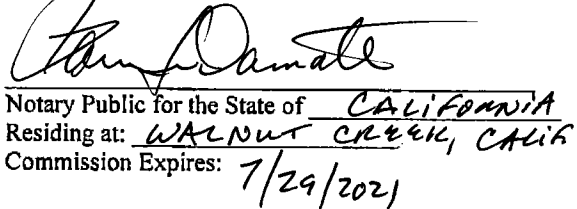 Damate
Notary Public for the State of CALIFORNIA
Residing at: WALNUT CREEK, CALIF
Commission Expires: 7/29/2021